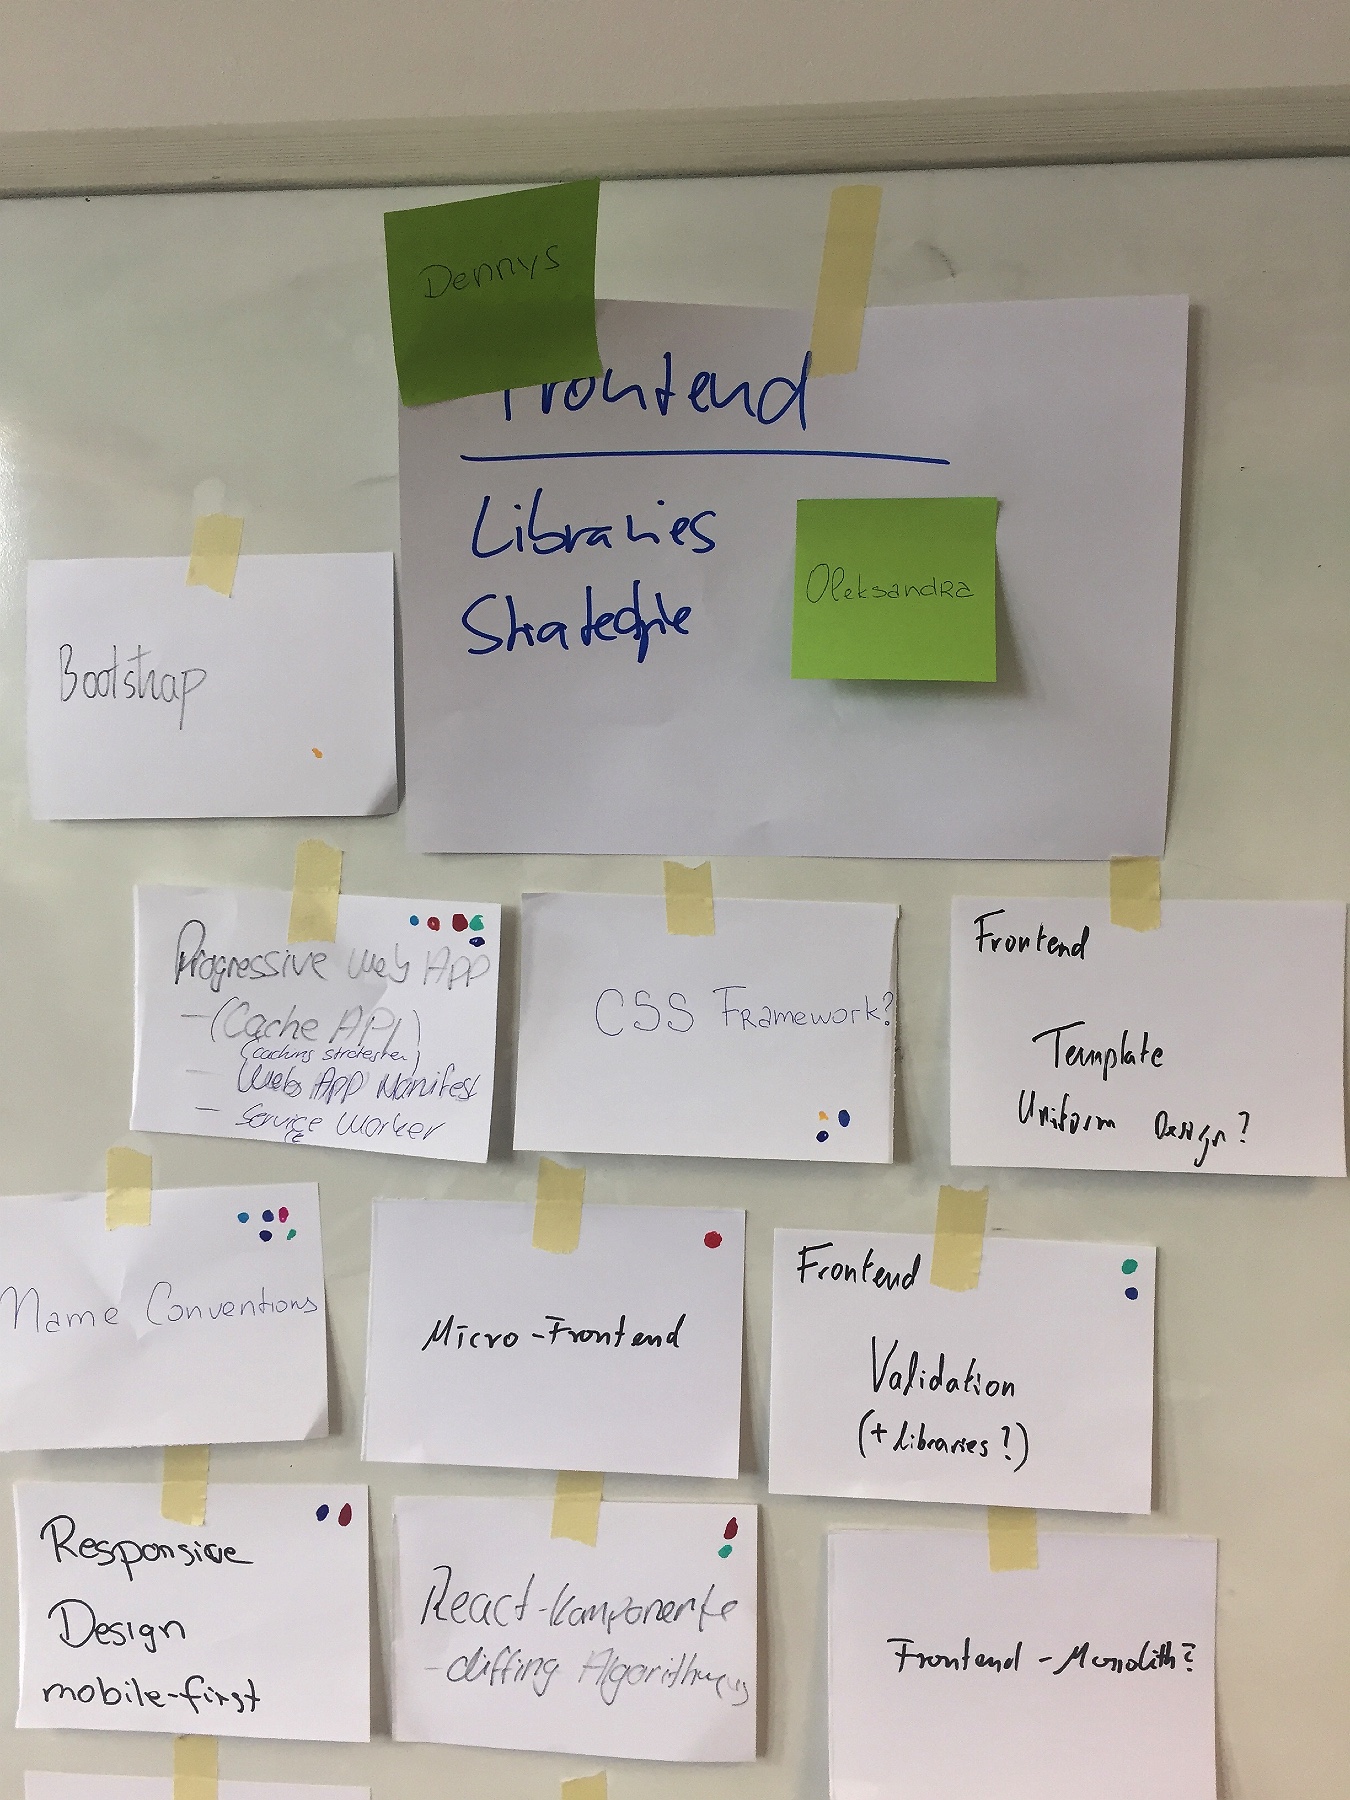 Dennys
Frontend
Libraries
Strategie
Oleksandra
Bootstrap
Progressive Web App
- (Cache API)
(caching strategien)
- Web App Manifest
- Service Worker
CSS Framework?
Frontend
Template
Uniform Design?
Name Conventions
Micro-Frontend
Frontend
Validation
(+ libraries?)
Responsive
Design
mobile-first
React-Komponente
- diffing Algorithmus
Frontend-Monolith?